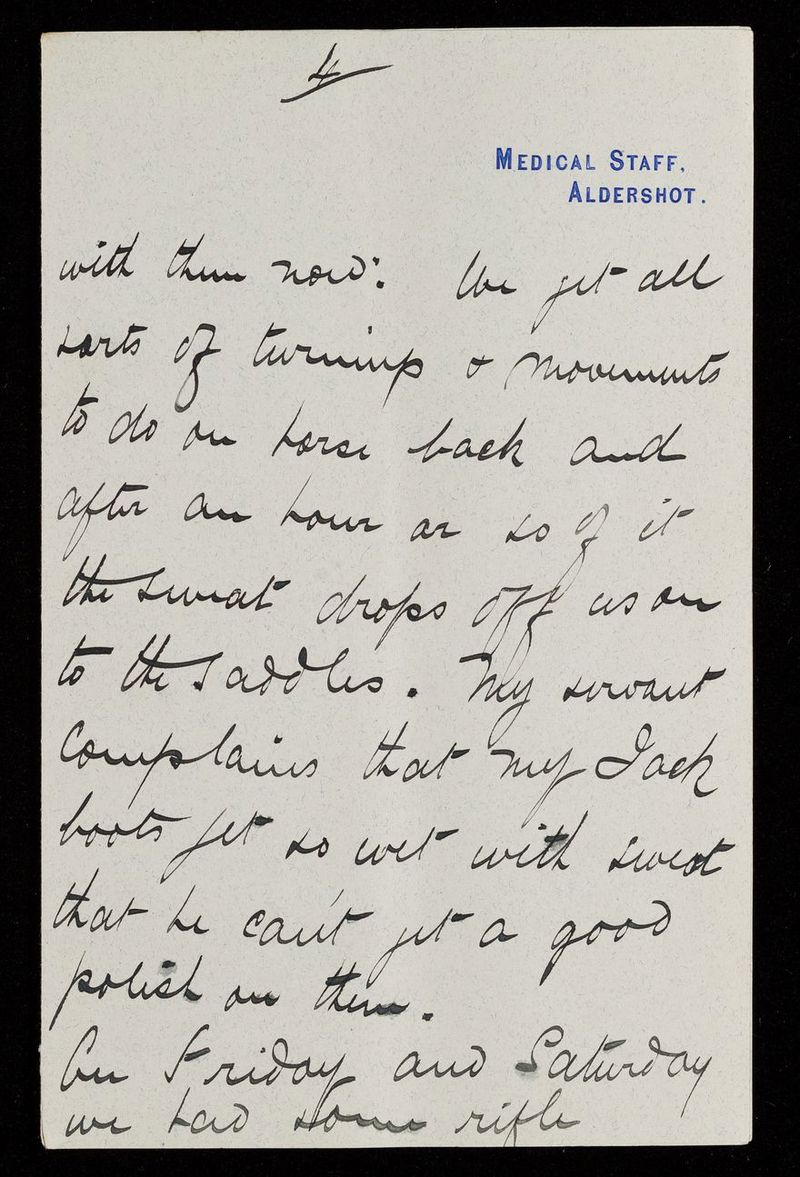 4
MEDICAL STAFF,
ALDERSHOT.
with them now". We get all
sorts of turnings & movements
to do on horse back and
after an hour or so of it
the sweat drops off us on
to the saddles. My servant
complains that my Jack
boots get so wet with sweat
that he can't get a good
polish on them.
On Friday and Saturday
we had some rifle